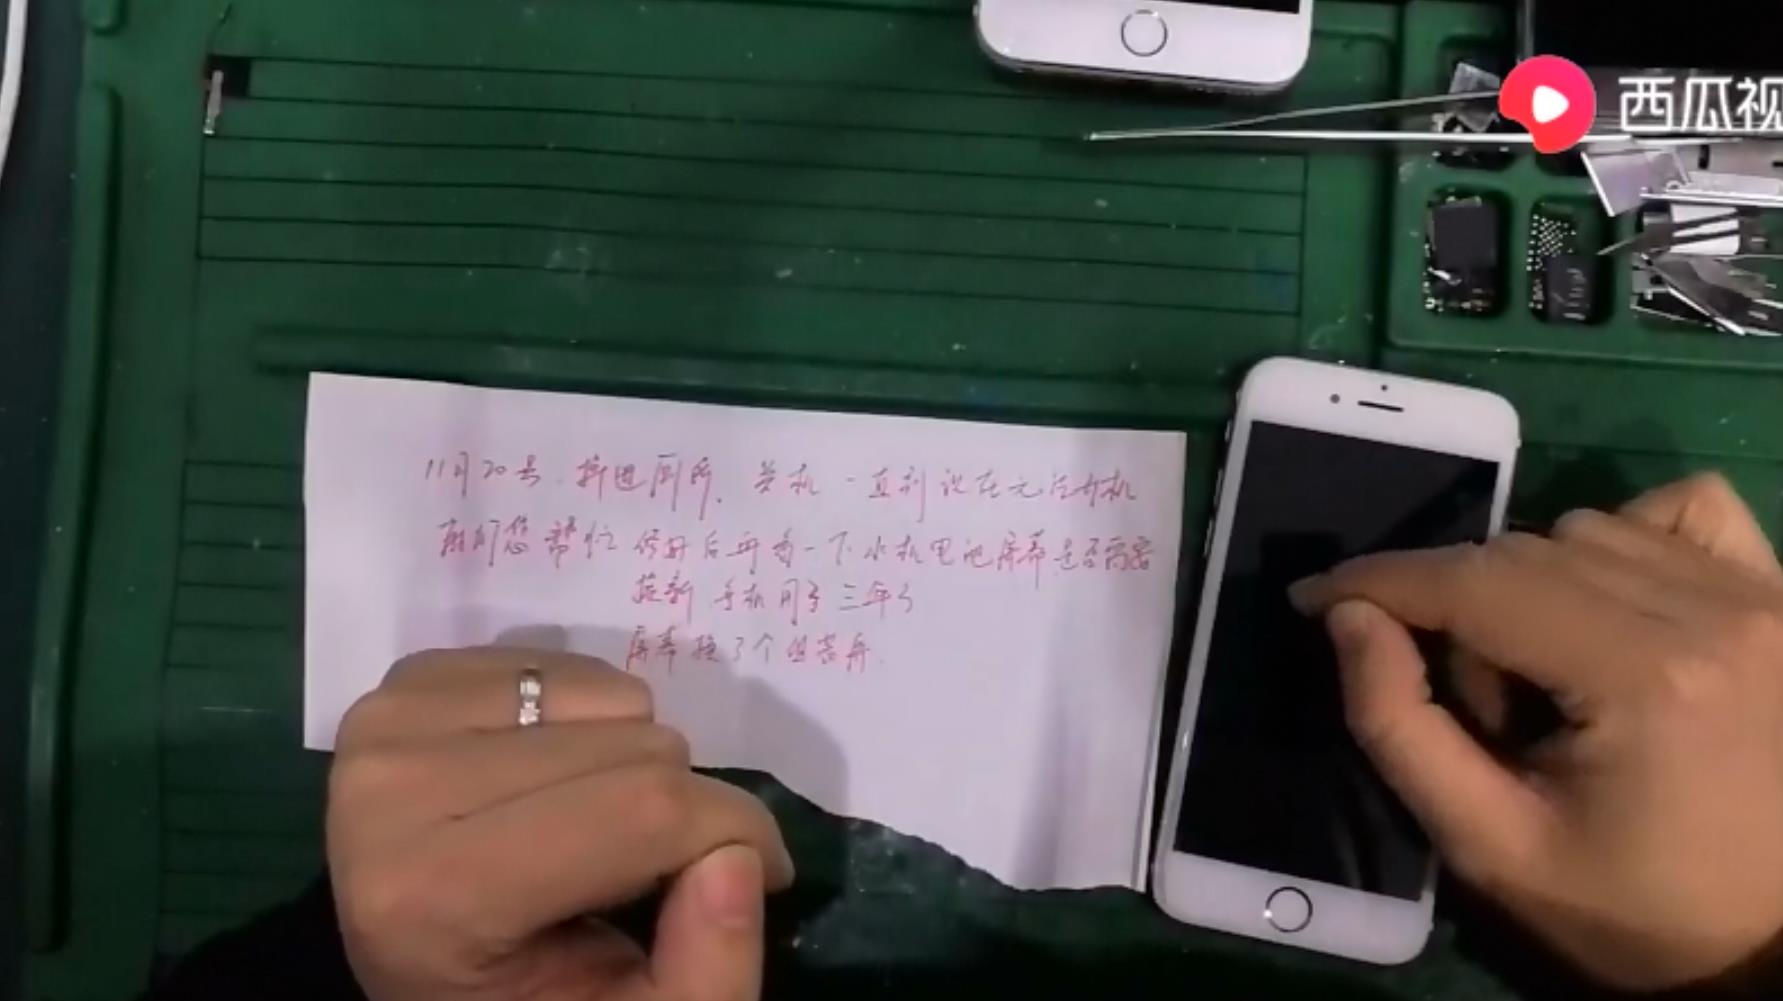 西瓜视
11月20号.掉进厕所.关机一直到现在无法开机
帮忙 修好后再看一下 水机电池屏幕是否需要
换新 手机用了三年了
屏幕换了个组装屏.